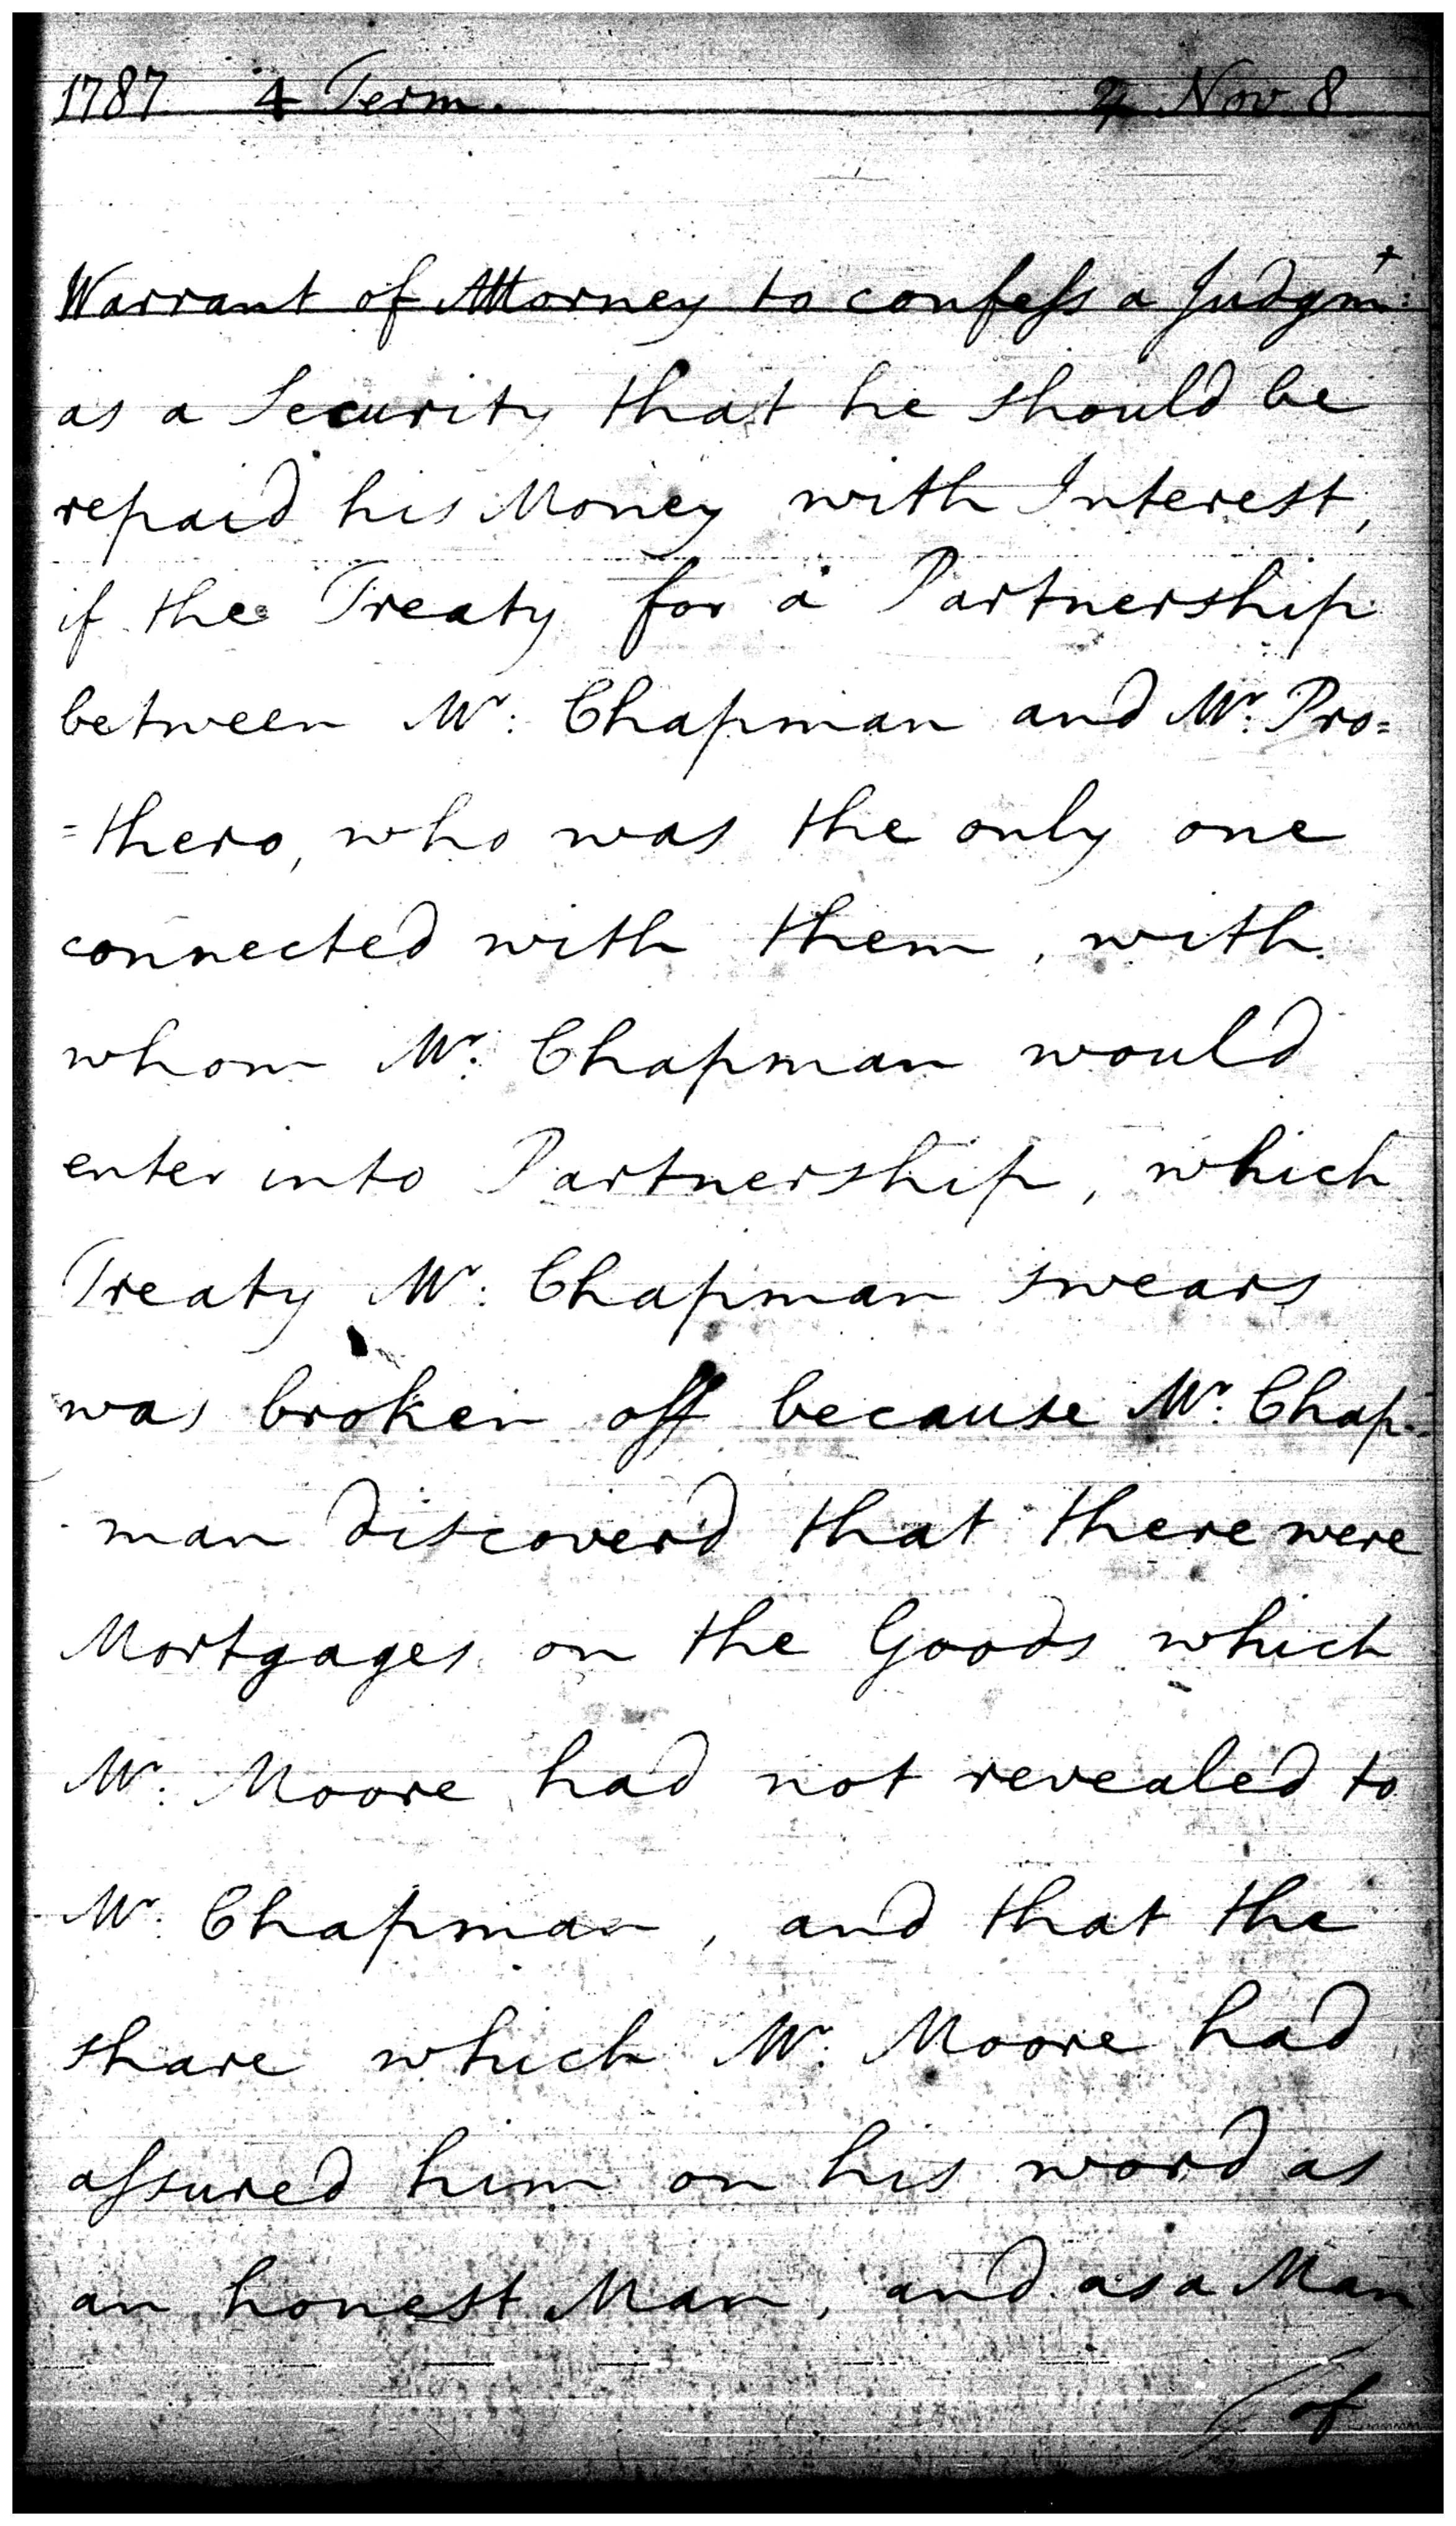 1787 4 Term. 2 Nov 8
Warrant of Attorney to confeſs a Judgm:t
as a Security that he should be
repaid his Money with Interest,
if the Treaty for a Partnership
between Mr: Chapman and Mr: Pro=
=thero, who was the only one
connected with them, with
whom Mr: Chapman would
enter into Partnership, which
Treaty Mr: Chapman swears
was broken off because Mr: Chap-
-man discover'd that there were
Mortgages on the Goods which
Mr: Moore had not revealed to
Mr: Chapman, and that the
share which Mr: Moore had
aſsured him on his word as
an honest Man, and as a Man
of